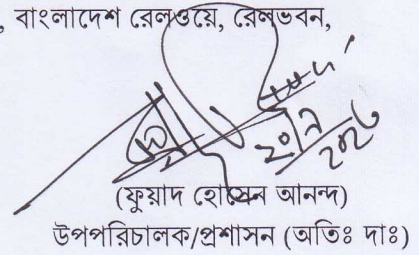 , বাংলাদেশ রেলওয়ে, রেলভবন,
(ফুয়াদ হোসেন আনন্দ)
উপপরিচালক/প্রশাসন (অতিঃ দাঃ)